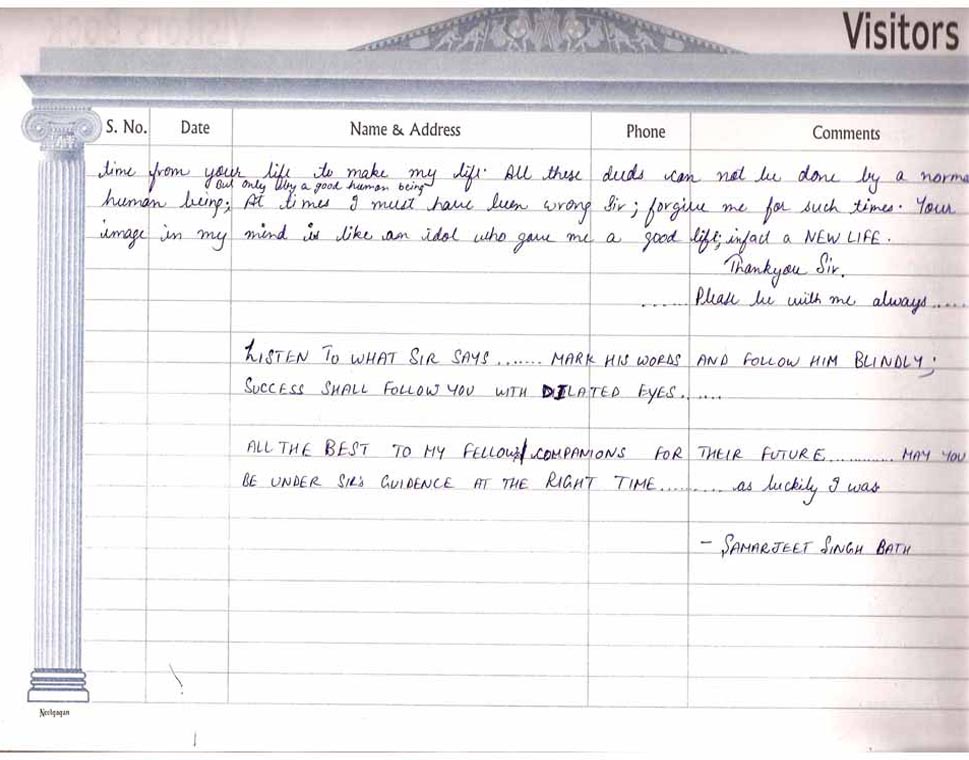 Visitors
S. No. Date Name & Address Phone Comments
time from your life to make my life. All these deeds can not be done by a norma
but only by a good human being
human being; At times I must have been wrong Sir; forgive me for such times. Your
image in my mind is like an idol who gave me a good life; infact a NEW LIFE.
Thankyou Sir.
...... Please be with me always .....
LISTEN TO WHAT SIR SAYS ....... MARK HIS WORDS AND FOLLOW HIM BLINDLY;
SUCCESS SHALL FOLLOW YOU WITH DILATED EYES. ....
ALL THE BEST TO MY FELLOW COMPANIONS FOR THEIR FUTURE ............ MAY YOU
BE UNDER SIR'S GUIDENCE AT THE RIGHT TIME............ as luckily I was
- SAMARJEET SINGH BATH
Neelgagan